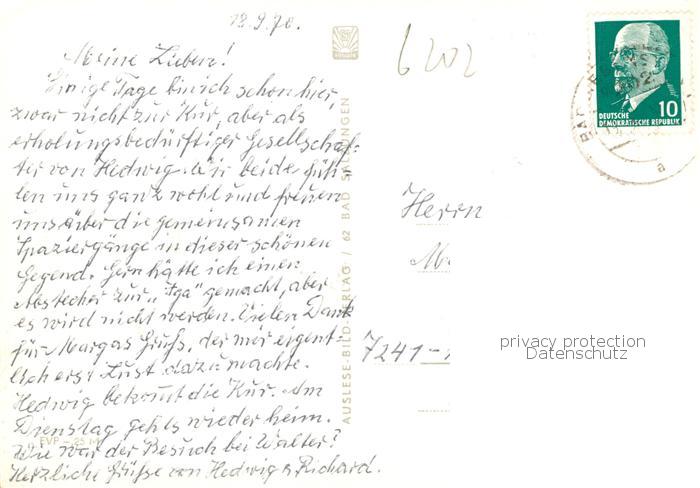 18.9.70.
Meine Lieben!
Einige Tage bin ich schon hier,
zwar nicht zur Kur, aber als
erholungsbedürftiger Gesellschaf-
ter von Hedwig. Wir beide füh-
len uns ganz wohl und freuen
uns über die gemeinsamen
Spaziergänge in dieser schönen
Gegend. Gern hätte ich einen
Abstecher zur "Iga" gemacht, aber
es wird nicht werden. Vielen Dank
für Margas Gruß, der mir eigent-
lich erst Lust dazu machte.
Hedwig bekommt die Kur. Am
Dienstag gehts wieder heim.
Wie war der Besuch bei Walter?
Herzliche Grüße von Hedwig u. Richard.
EVP - 25 M
AUSLESE-BILD-VERLAG / 62 BAD SALZUNGEN
6202
DEUTSCHE
DEMOKRATISCHE REPUBLIK
10
BAD
a
Herrn
M
7241-
privacy protection
Datenschutz